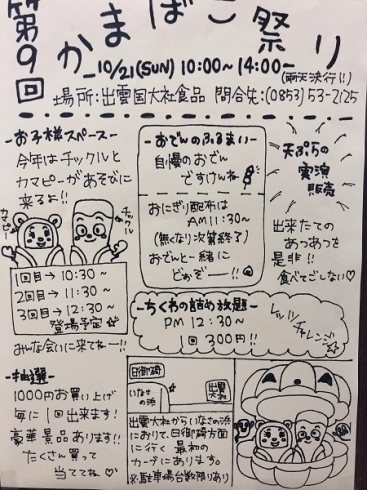 第9回
かまぼこ祭り
10/21(SUN) 10:00~14:00
(雨天決行!!)
場所:出雲国大社食品 問合先:(0853)53-2125
-お子様スペース-
今年はチックルと
カマピーがあそびに
来るよ!!
カマピー
チックル
1回目→10:30~
2回目→11:30~
3回目→12:30~
登場予定☆
みんな会いに来てねー!!
-おでんのふるまい-
自慢のおでん
ですけんね
おにぎり配布は
AM11:30~
(無くなり次第終了)
おでんと一緒に
どぉぞー!!
天ぷらの
実演
販売
出来たての
あつあつを
是非!!
食べてごしない♡
-ちくわの詰め放題-
PM 12:30~
1回 300円!!
レッツチャレンジ☆
-抽選-
1000円お買い上げ
毎に1回出来ます!
豪華景品あります!!
たくさん買って
当ててね♡
日御碕
いなさの浜
出雲大社
出雲大社からいなさの浜
におりて、日御碕方面
に行く最初の
カーブにあります。
※駐車場台数限りあり